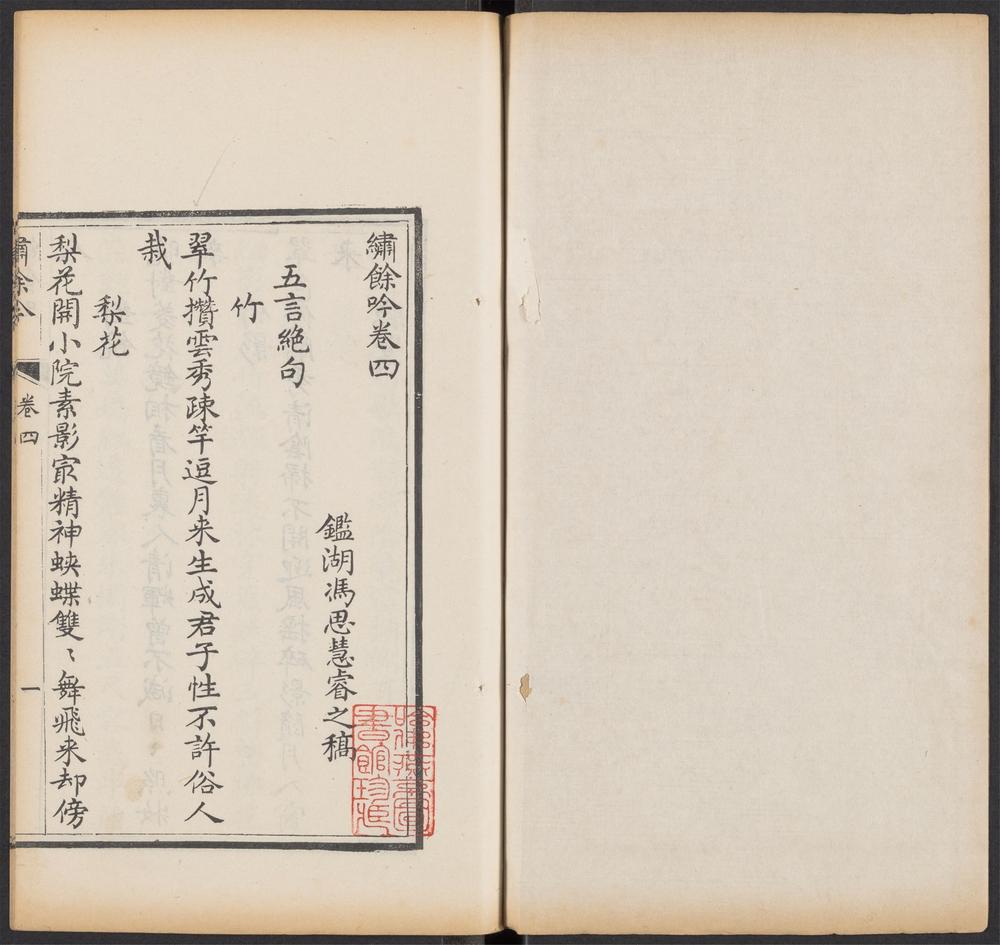 繡餘吟卷四
鑑湖馮思慧睿之稿
五言絕句
竹
翠竹攢雲秀疎竿逗月来生成君子性不許俗人
栽
梨花
梨花開小院素影㝡精神蛺蝶雙〻舞飛来却傍
繡餘吟
卷四
一
哈佛燕京圖
書館珍藏